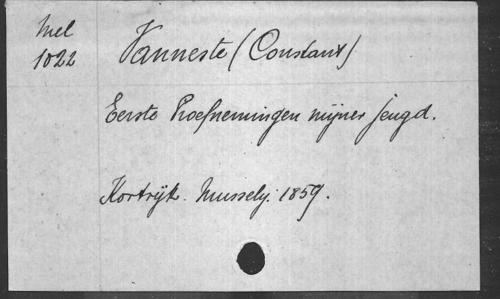 Mel
1022
Vanneste (Constant)
Eerste Proefnemingen mijner jeugd.
Kortrijk. Mussely. 1859.